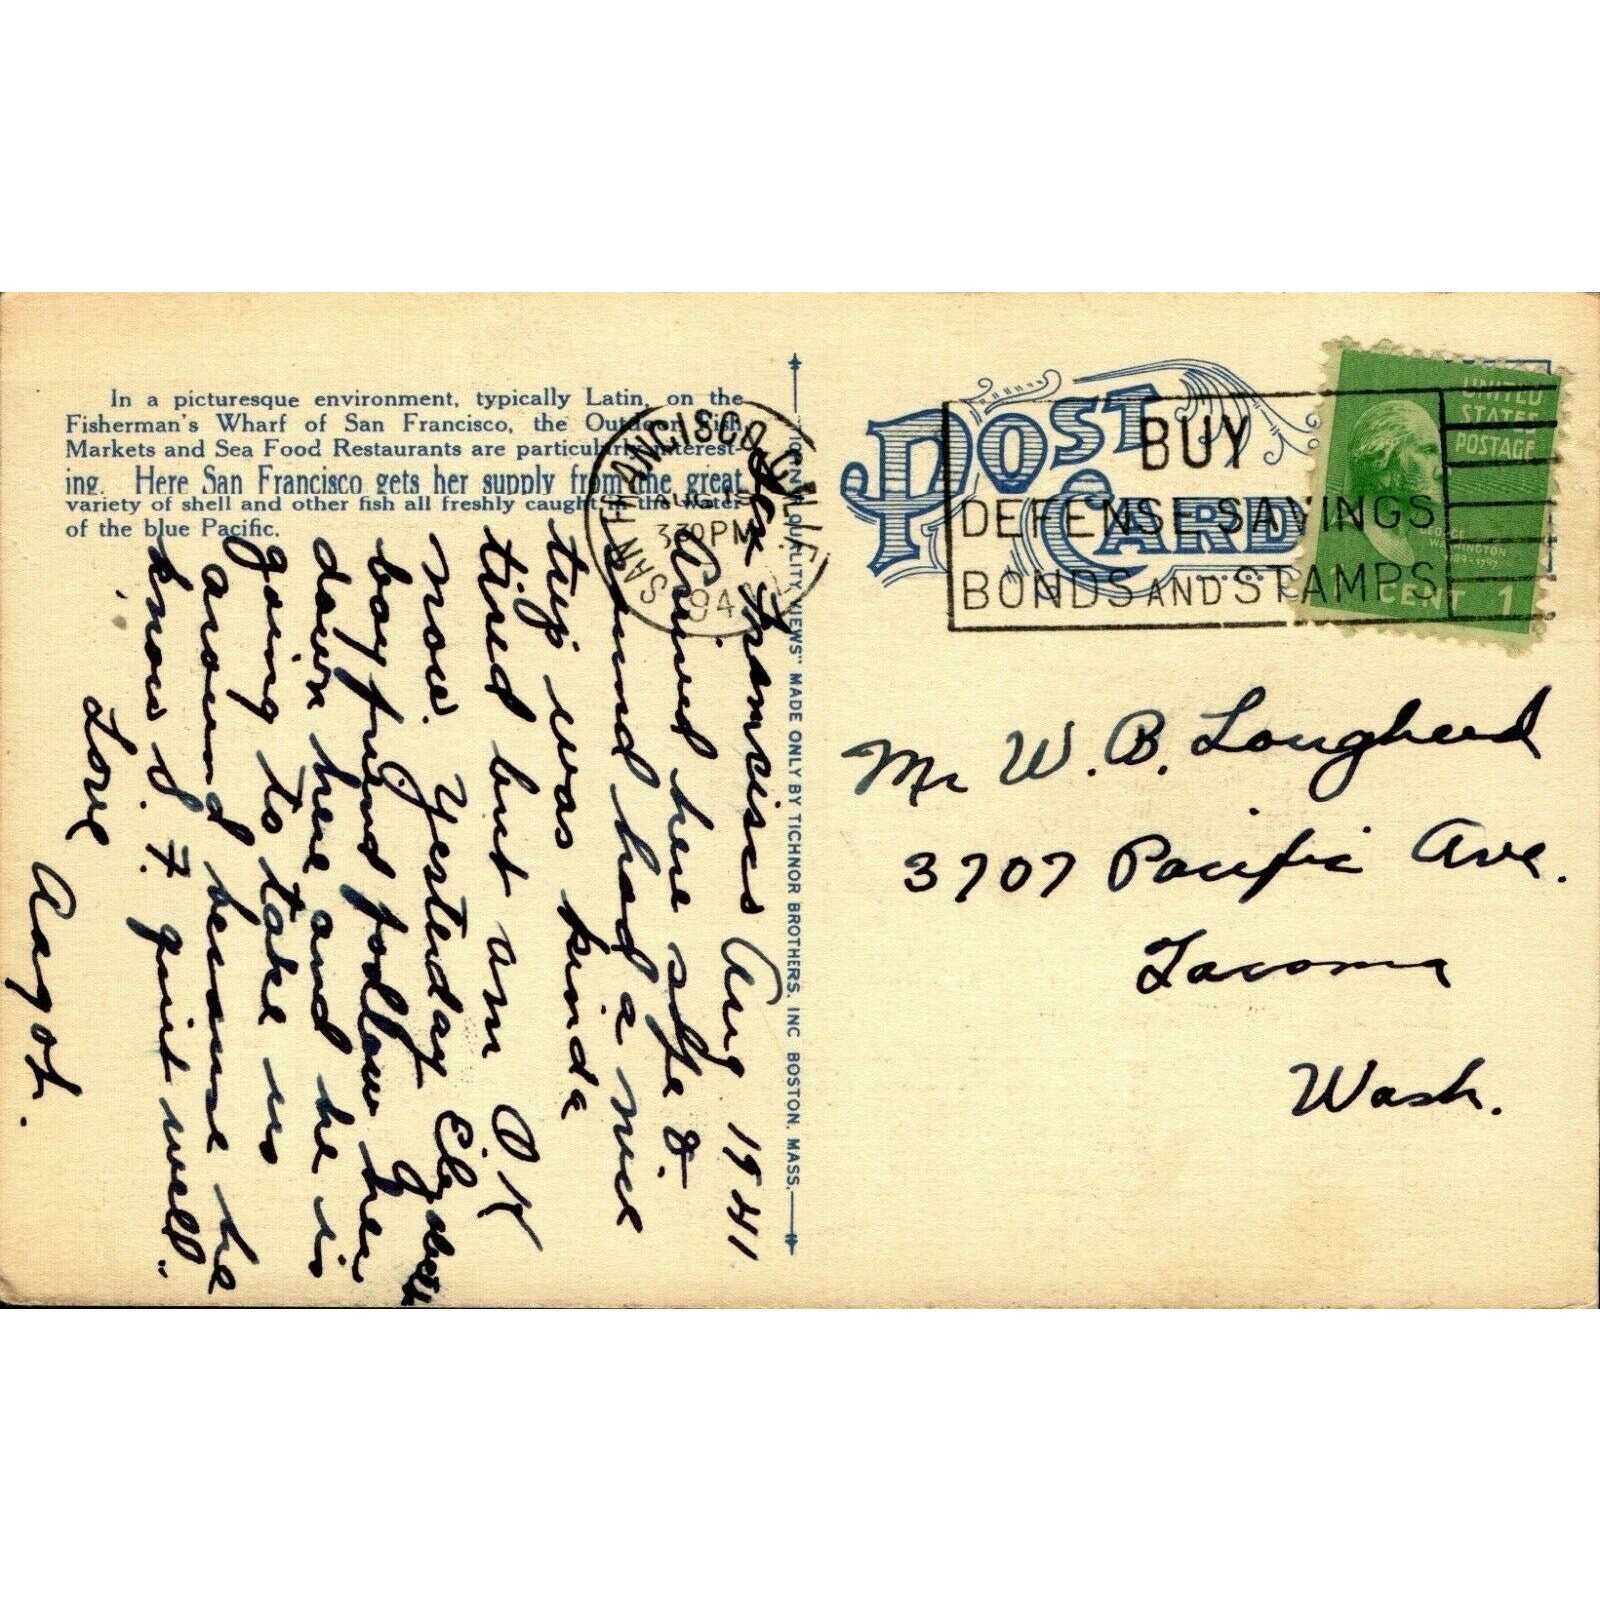 In a picturesque environment, typically Latin, on the
Fisherman's Wharf of San Francisco, the Outdoor Fish
Markets and Sea Food Restaurants are particularly interest-
ing. Here San Francisco gets her supply from the great
variety of shell and other fish all freshly caught in the water
of the blue Pacific.
San Francisco Aug 1941
Arrived here safe &
sound had a nice
trip was kinda
tired but am O K
now. Yesterday Elizabeth
boy friend follow her
down here and he is
going to take us
around because he
know's it quit well.
Love
Margot.
"TICHNOR QUALITY VIEWS" MADE ONLY BY TICHNOR BROTHERS, INC BOSTON, MASS.
SAN FRANCISCO CALIF.
AUG 15
330PM
194
POST CARD
BUY
DEFENSE SAVINGS
BONDS AND STAMPS
UNITED
STATES
POSTAGE
GEORGE
WASHINGTON
1789-1797
CENT 1
Mr W. B. Lougheed
3707 Pacific Ave.
Tacoma
Wash.